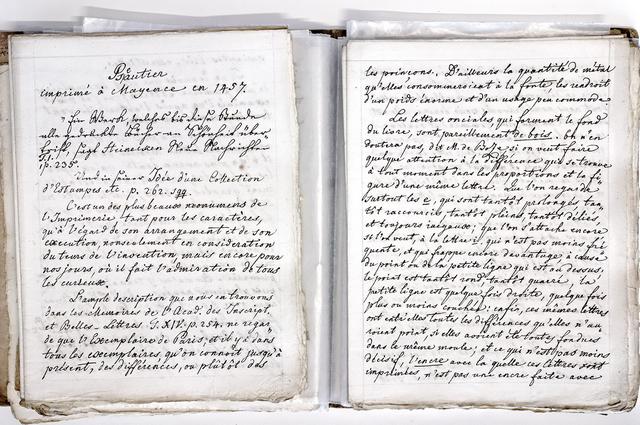 Psautier
imprimé à Mayence en 1457.
" Ein Werk, welches bis diese Stunde
alle gedruckte Bücher an Schönheit über-
trifft, sagt Heinecken Neue Nachrichten
T. I. p. 235.
Und in seiner Idée d'une Collection
d'Estampes etc. p. 262. sqq.
C'est un des plus beaux monumens de
l'Imprimerie, tant pour les caractères,
qu'à l'égard de son arrangement et de son
execution, nonseulement en considération
du tems de l'invention, mais encore pour
nos jours, où il fait l'admiration de tous
les curieux.
L'ample description que nous en trouvons
dans les Memoires de l'Acad. des Inscript.
et Belles-Lettres T. XIV. p. 254. ne regar-
de que l'Exemplaire de Paris, et il y a dans
tous les exemplaires, qu'on connoit jusqu'à
présent, des différences, ou plûtôt des
les poinçons. D'ailleurs la quantité de métal
qu'elles consommeroient à la fonte les rendroit
d'un poids énorme et d'un usage peu commode.
Les lettres onciales qui forment le fond
du livre, sont pareillement de bois. On n'en
doutera pas, dit M. de Boze, si on veut faire
quelque attention à la différence qui se trouve
à tout moment dans les proportions et la fi-
gure d'une même lettre. Que l'on regarde
surtout les e, qui sont tantôt prolongés, tan-
tôt raccourcis, tantôt pleins, tantôt déliés,
et toujours inégaux; que l'on s'attache encore
si l'on veut, à la lettre i, qui n'est pas moins fré-
quente, et qui frappe encore davantage, à cause
du point ou de la petite ligne qui est au dessus:
le point est tantôt rond, tantôt quarré, la
petite ligne est quelque fois droite, quelque fois
plus ou moins couchée: enfin, ces mêmes lettres
ont entre elles toutes les différences qu'elles n'au-
roient point, si elles avoient été toutes fondues
dans le même moule; et ce qui n'est pas moins
décisif, l'encre avec la quelle ces lettres sont
imprimées, n'est pas une encre faite avec